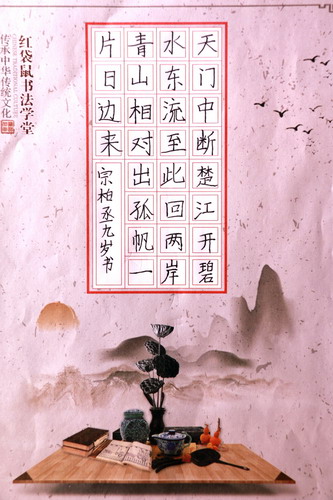 天门中断楚江开碧
水东流至此回两岸
青山相对出孤帆一
片日边来
宗柏丞九岁书
红袋鼠书法学堂
传承中华传统文化